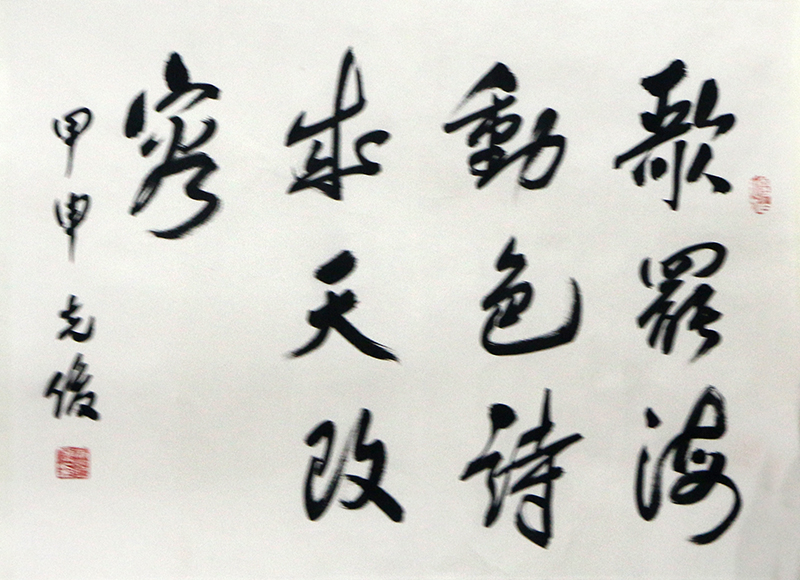 歌罷海
動色詩
成天改
容
甲申 克俊